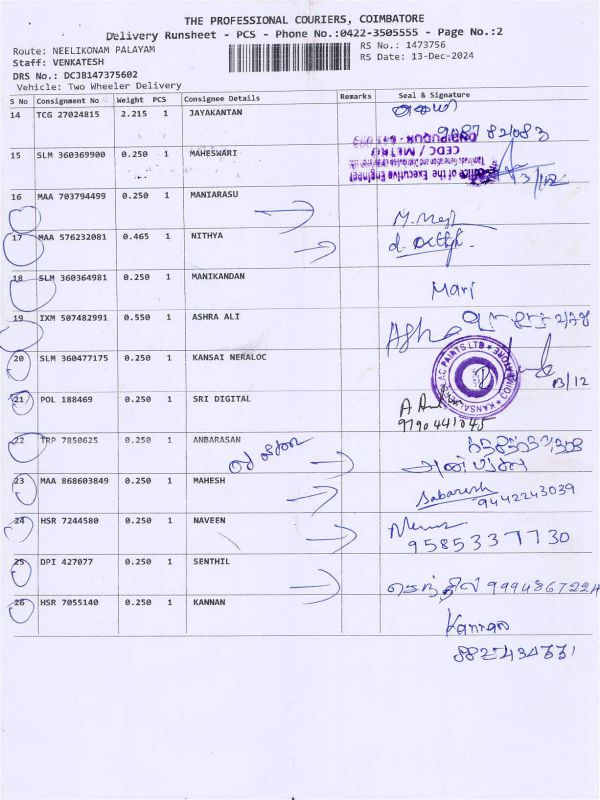 THE PROFESSIONAL COURIERS, COIMBATORE
Delivery Runsheet - PCS - Phone No.:0422-3505555 - Page No.:2
Route: NEELIKONAM PALAYAM
RS No.: 1473756
Staff: VENKATESH
RS Date: 13-Dec-2024
DRS No.: DCJB147375602
Vehicle: Two Wheeler Delivery
S No Consignment No Weight PCS Consignee Details Remarks Seal & Signature
14 TCG 27024815 2.215 1 JAYAKANTAN
15 SLM 360369900 0.250 1 MAHESWARI
Office of the Executive Engineer
CEDC / METRO
16 MAA 703794499 0.250 1 MANIARASU
17 MAA 576232081 0.465 1 NITHYA
18 SLM 360364981 0.250 1 MANIKANDAN Mari
19 IXM 507482991 0.550 1 ASHRA ALI
20 SLM 360477175 0.250 1 KANSAI NERALOC 13/12
21 POL 188469 0.250 1 SRI DIGITAL
9790441045
22 TRP 7850625 0.250 1 ANBARASAN
23 MAA 868603849 0.250 1 MAHESH Sabaresh
9442243039
24 HSR 7244580 0.250 1 NAVEEN
9585337730
25 DPI 427077 0.250 1 SENTHIL
செந்தில்
26 HSR 7055140 0.250 1 KANNAN Kannan
8827434771